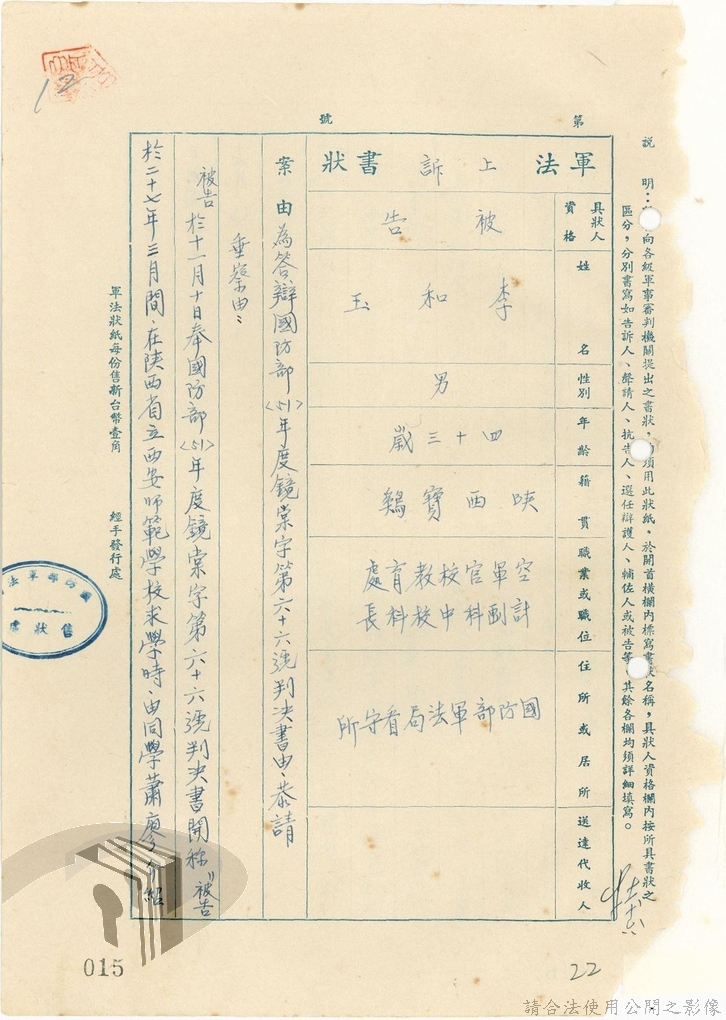 12
第　號
說　明：向各級軍事審判機關提出之書狀，須用此狀紙。於開首橫欄內標寫書狀名稱，具狀人資格欄內按所具書狀之
區分，分別書寫如告訴人、聲請人、抗告人、選任辯護人、輔佐人或被告等，其餘各欄均須詳細填寫。
軍法上訴書狀
具狀人資格
被告
姓名
李和玉
性別
男
年齡
四十三歲
籍貫
陝西寶鷄
職業或職位
空軍官校教育處
計劃科中校科長
住所或居所
國防部軍法局看守所
送達代收人
案由為答辯國防部〈51〉年度鏡棠字第六十六號判決書由、恭請
重察由：
被告於十一月十日奉國防部〈51〉年度鏡棠字第六十六號判決書開称"被告
於二十七年三月間、在陝西省立西安師範學校求學時、由同學蕭廖介紹
軍法狀紙每份售新台幣壹角　經手發行處
國防部軍法
售狀處
015
22
請合法使用公開之影像